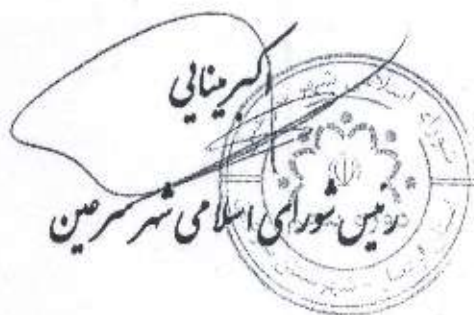 اکبر مینایی
رئیس شورای اسلامی شهر سرعین